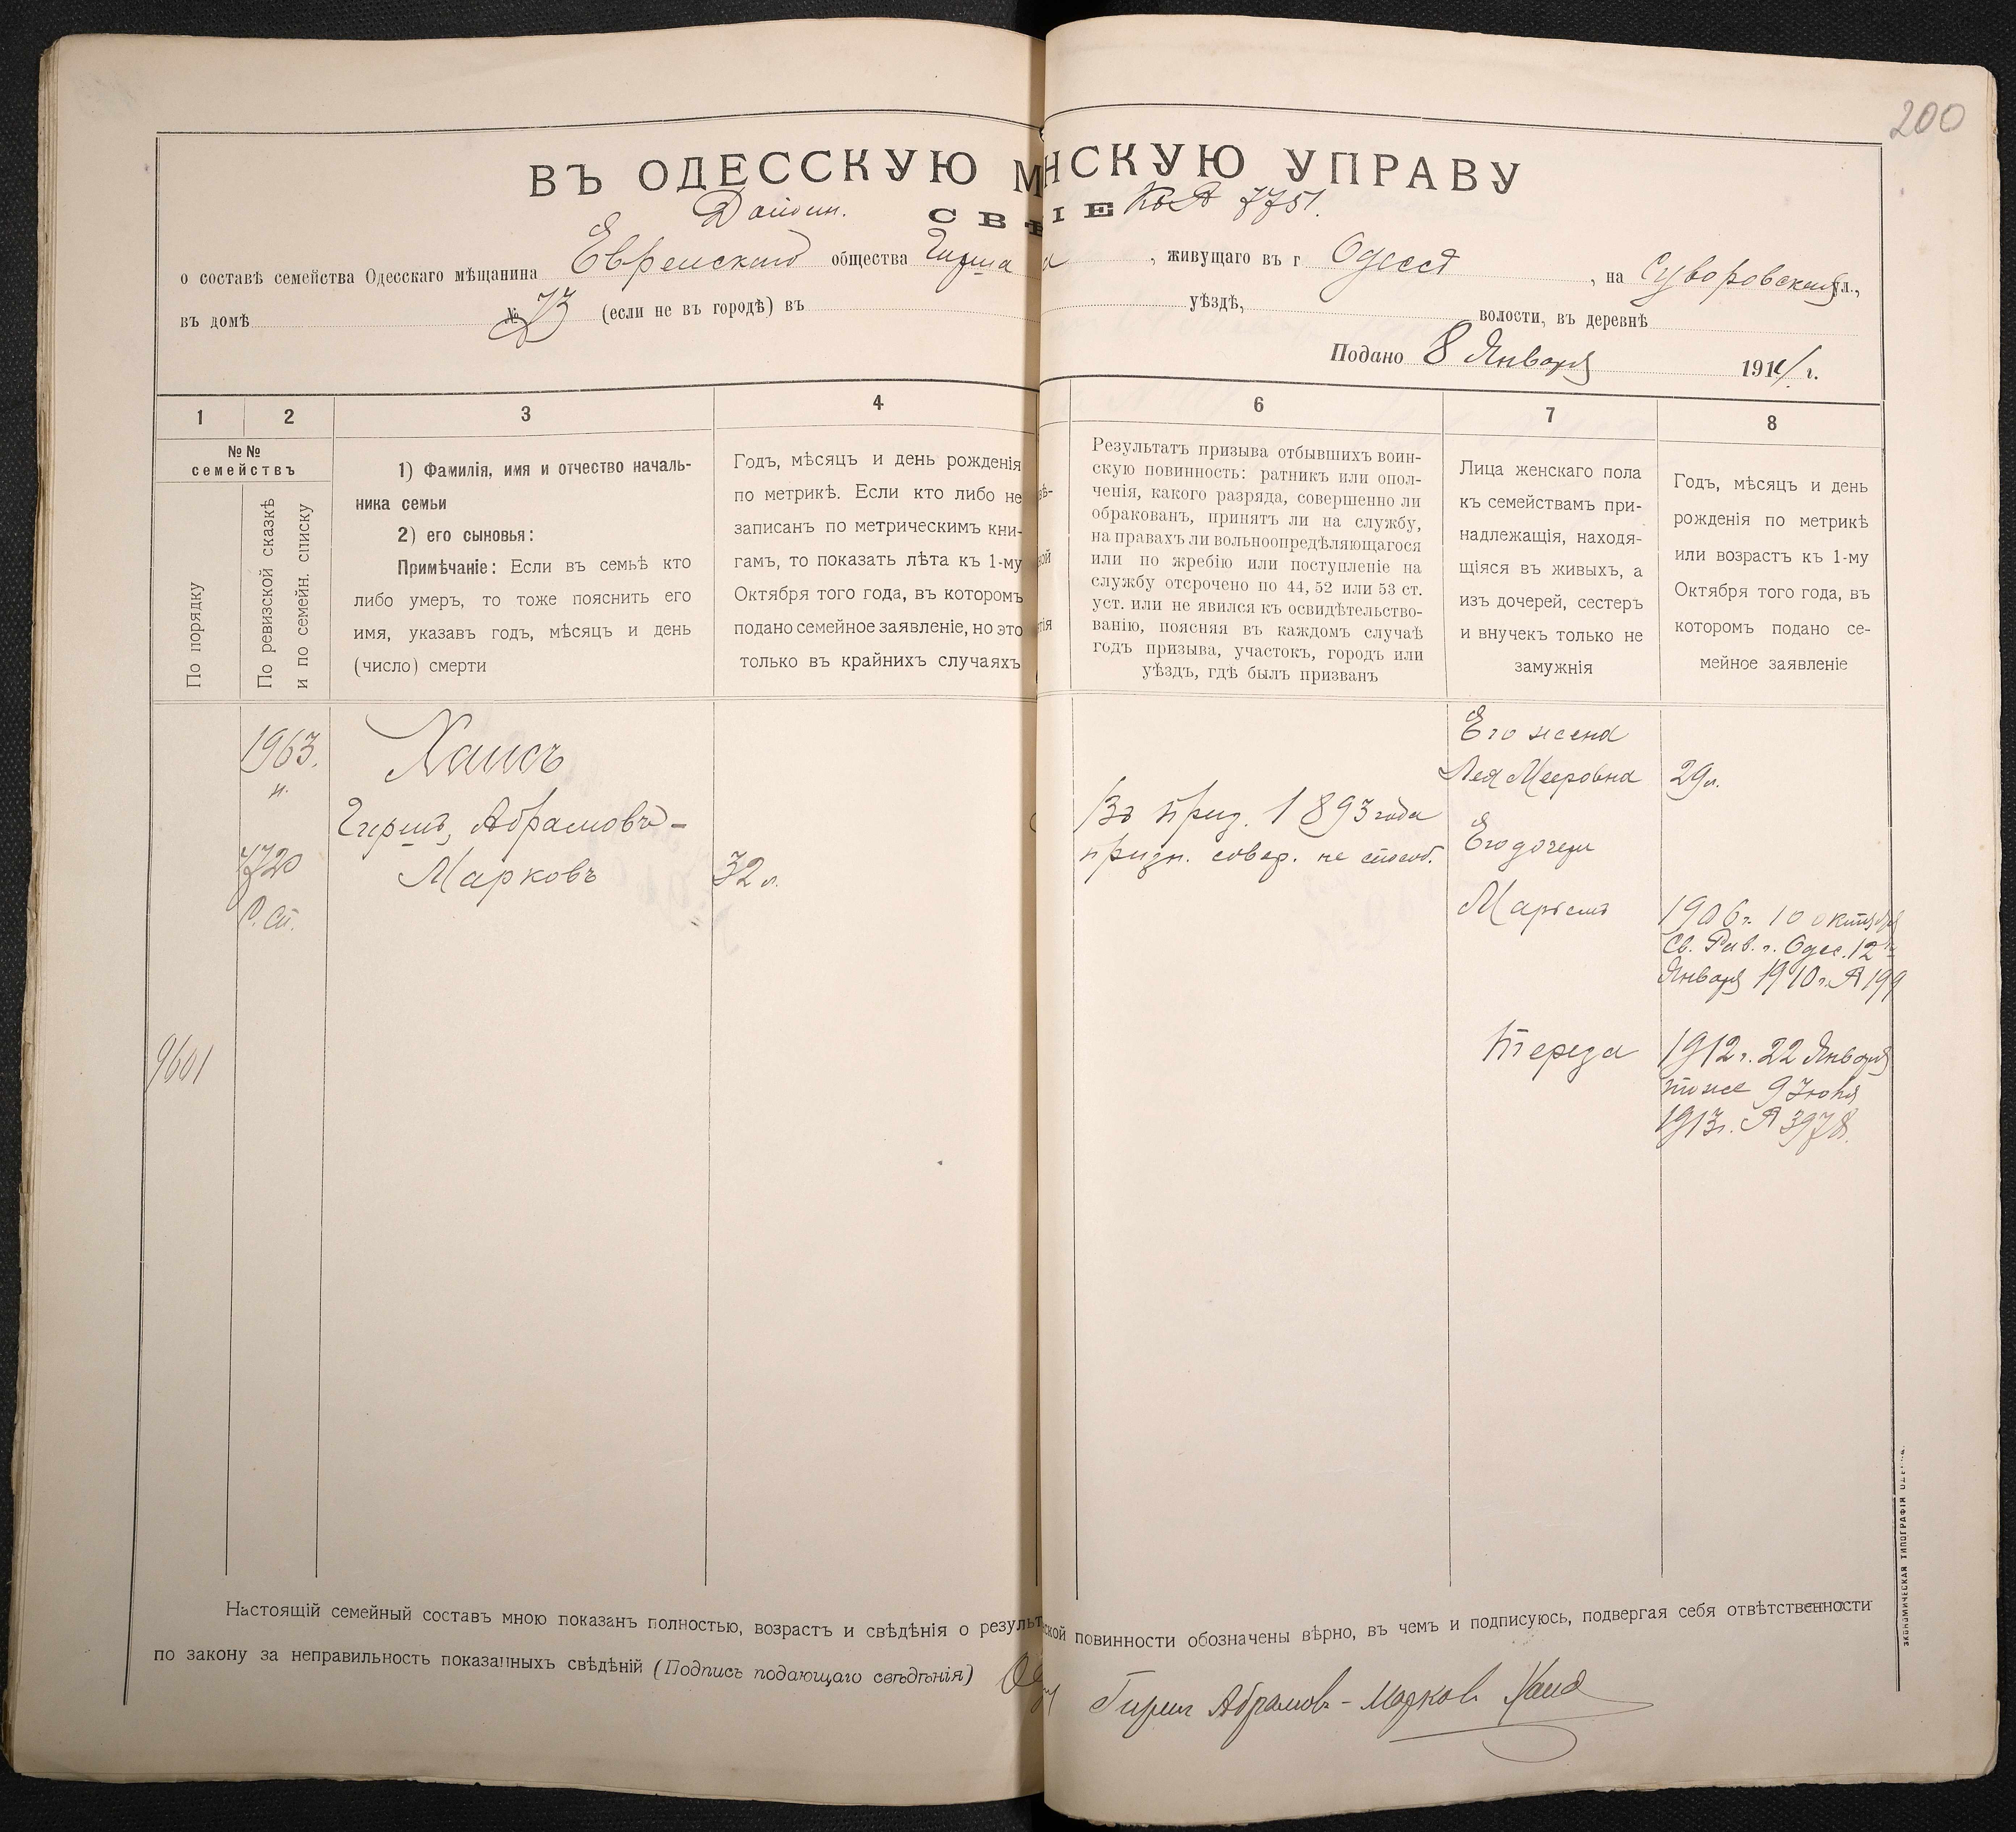 200
ВЪ ОДЕССКУЮ М НСКУЮ УПРАВУ
7751.
СВѢ ІЕ
о составѣ семейства Одесскаго мѣщанина Еврейскаго общества Гирша , живущаго въ г Одессѣ , на Суворовской ул.,
въ домѣ № 23 (если не въ городѣ) въ уѣздѣ, волости, въ деревнѣ
Подано 8 Января 1914 г.
1 2 3 4 6 7 8
№№
семействъ
По порядку
По ревизской сказкѣ
и по семейн. списку
1) Фамилія, имя и отчество началь-
ника семьи
2) его сыновья:
Примѣчаніе: Если въ семьѣ кто
либо умеръ, то тоже пояснить его
имя, указавъ годъ, мѣсяцъ и день
(число) смерти
Годъ, мѣсяцъ и день рожденія
по метрикѣ. Если кто либо не
записанъ по метрическимъ кни-
гамъ, то показать лѣта къ 1-му
Октября того года, въ которомъ
подано семейное заявленіе, но это
только въ крайнихъ случаяхъ
Результатъ призыва отбывшихъ воин-
скую повинность: ратникъ или опол-
ченія, какого разряда, совершенно ли
обракованъ, принятъ ли на службу,
на правахъ ли вольноопредѣляющагося
или по жребію или поступленіе на
службу отсрочено по 44, 52 или 53 ст.
уст. или не явился къ освидѣтельство-
ванію, поясняя въ каждомъ случаѣ
годъ призыва, участокъ, городъ или
уѣздъ, гдѣ былъ призванъ
Лица женскаго пола
къ семействамъ при-
надлежащія, находя-
щіяся въ живыхъ, а
изъ дочерей, сестеръ
и внучекъ только не
замужнія
Годъ, мѣсяцъ и день
рожденія по метрикѣ
или возрастъ къ 1-му
Октября того года, въ
которомъ подано се-
мейное заявленіе
1963.
н.
7720
Р. Сп.
9601
Хаисъ
Гиршъ, Абрамовъ-
Марковъ
32 л.
Въ приз. 1893 года
призн. совер. не способ.
Его жена
Лея Мееровна 29 л.
Его дочери
Марьемъ 1906 г. 10 октября
Св. Рав. г. Одес. 12
Января 1910 г. № 199
Тереза 1912 г. 22 Января
тоже 9 Іюня
1913 г. № 3978.
Настоящій семейный составъ мною показанъ полностью, возрастъ и свѣдѣнія о результ ской повинности обозначены вѣрно, въ чемъ и подписуюсь, подвергая себя отвѣтственности
по закону за неправильность показанныхъ свѣдѣній (Подпись подающаго свѣдѣнія) Гирш Абрамов-Марков Хаис
ЭКОНОМИЧЕСКАЯ ТИПОГРАФІЯ ОДЕССА.